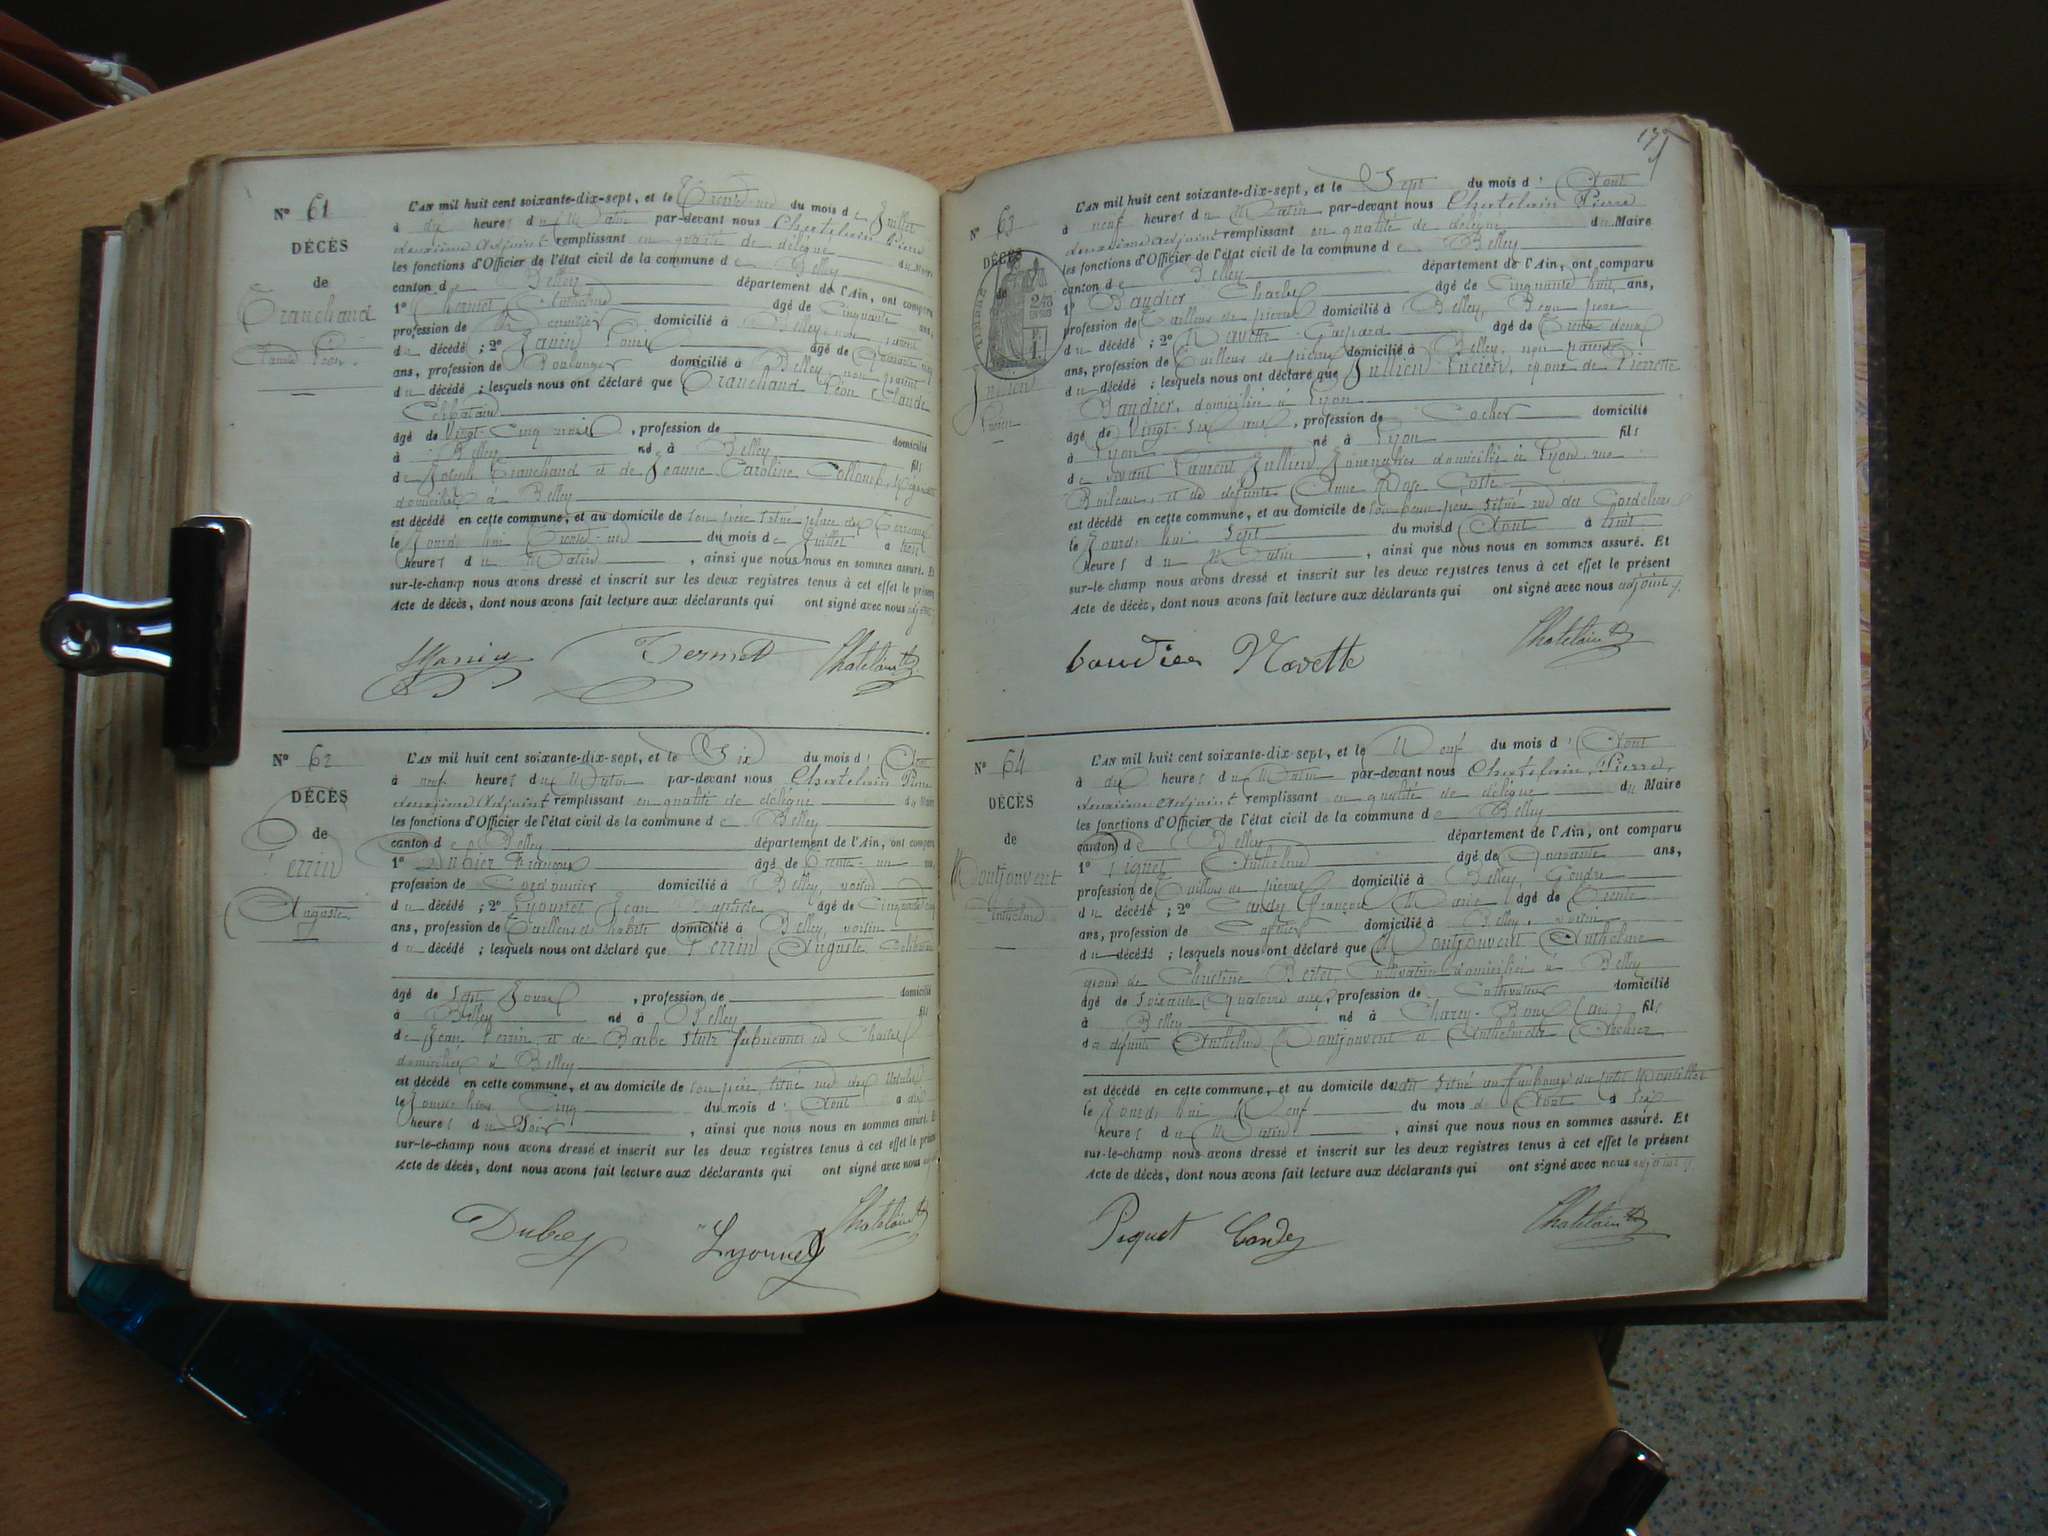 Nº 61
DÉCÈS
de
Tranchand
L'AN mil huit cent soixante-dix-sept, et le Trente-un du mois de Juillet
à dix heures du Matin par-devant nous Chatelain Pierre
deuxième adjoint remplissant en qualité de délégué du Maire
les fonctions d'Officier de l'état civil de la commune de Belley
canton de Belley département de l'Ain, ont comparu
1º Anthelme âgé de Cinquante ans,
profession de domicilié à Belley, non parent
du décédé ; 2º Janin Louis âgé de
ans, profession de Boulanger domicilié à Belley, non parent
du décédé ; lesquels nous ont déclaré que Tranchand Léon Claude
Célibataire
âgé de Vingt-Cinq mois, profession de domicilié
à Belley né à Belley fils
de Joseph Tranchand et de Jeanne Caroline Collomb,
domiciliés à Belley
est décédé en cette commune, et au domicile de son père situé place des Terreaux
le Jourd'hui Trente-un du mois de Juillet à trois
heures du Matin, ainsi que nous nous en sommes assuré. Et
sur-le-champ nous avons dressé et inscrit sur les deux registres tenus à cet effet le présent
Acte de décès, dont nous avons fait lecture aux déclarants qui ont signé avec nous adjoint
Chatelain
Nº 62
DÉCÈS
de
Perrin
Auguste
L'AN mil huit cent soixante-dix-sept, et le Six du mois d'Aout
à neuf heures du Matin par-devant nous Chatelain Pierre
deuxième adjoint remplissant en qualité de délégué du Maire
les fonctions d'Officier de l'état civil de la commune de Belley
canton de Belley département de l'Ain, ont comparu
1º François âgé de Trente-un ans,
profession de Cordonnier domicilié à Belley, voisin
du décédé ; 2º Lyonnet Jean Baptiste âgé de Cinquante
ans, profession de Tailleur d'habits domicilié à Belley, voisin
du décédé ; lesquels nous ont déclaré que Perrin Auguste Célibataire
âgé de Sept Jours, profession de domicilié
à Belley né à Belley fils
de Jean Perrin et de Barbe Stutz
domiciliés à Belley
est décédé en cette commune, et au domicile de son père, situé rue des
le Jour d'hier Cinq du mois d'Aout à dix
heures du Soir, ainsi que nous nous en sommes assuré. Et
sur-le-champ nous avons dressé et inscrit sur les deux registres tenus à cet effet le présent
Acte de décès, dont nous avons fait lecture aux déclarants qui ont signé avec nous
Lyonnet Chatelain
Nº 63
DÉCÈS
de
Jullien
Lucien
L'AN mil huit cent soixante-dix-sept, et le Sept du mois d'Aout
à neuf heures du Matin par-devant nous Chatelain Pierre
deuxième adjoint remplissant en qualité de délégué du Maire
les fonctions d'Officier de l'état civil de la commune de Belley
canton de Belley département de l'Ain, ont comparu
1º Baudier Charles âgé de Cinquante huit ans,
profession de Tailleur de pierres domicilié à Belley, Beau père
du décédé ; 2º Navette Gaspard âgé de Trente deux
ans, profession de Tailleur de pierres domicilié à Belley, non parent
du décédé ; lesquels nous ont déclaré que Jullien Lucien, époux de Pierrette
Baudier, domiciliée à Lyon
âgé de Vingt-six ans, profession de Cocher domicilié
à Lyon né à Lyon fils
de vivant Laurent Jullien domicilié à Lyon, rue
Boileau, et de défunte Anne Rose Coste
est décédé en cette commune, et au domicile de son beau père situé rue des Cordeliers
le Jourd'hui Sept du mois d'Aout à huit
heures du Matin, ainsi que nous nous en sommes assuré. Et
sur-le-champ nous avons dressé et inscrit sur les deux registres tenus à cet effet le présent
Acte de décès, dont nous avons fait lecture aux déclarants qui ont signé avec nous adjoint
baudier Navette Chatelain
Nº 64
DÉCÈS
de
Montjouvent
Anthelme
L'AN mil huit cent soixante-dix-sept, et le Neuf du mois d'Aout
à dix heures du Matin par-devant nous Chatelain Pierre,
deuxième adjoint remplissant en qualité de délégué du Maire
les fonctions d'Officier de l'état civil de la commune de Belley
canton de Belley département de l'Ain, ont comparu
1º Piquet Anthelme âgé de Quarante ans,
profession de Tailleur de pierres domicilié à Belley, Gendre
du décédé ; 2º Candy François Marie âgé de Trente
ans, profession de domicilié à Belley, voisin
du décédé ; lesquels nous ont déclaré que Montjouvent Anthelme
époux de Christine Bertet, Cultivatrice domiciliée à Belley
âgé de Soixante Quatorze ans, profession de Cultivateur domicilié
à Belley né à (ain) fils
de défunts Anthelme Montjouvent et Anthelmette
est décédé en cette commune, et au domicile de situé au faubourg du
le Jourd'hui Neuf du mois d'Aout à Six
heures du Matin, ainsi que nous nous en sommes assuré. Et
sur-le-champ nous avons dressé et inscrit sur les deux registres tenus à cet effet le présent
Acte de décès, dont nous avons fait lecture aux déclarants qui ont signé avec nous adjoint
Piquet Candy Chatelain